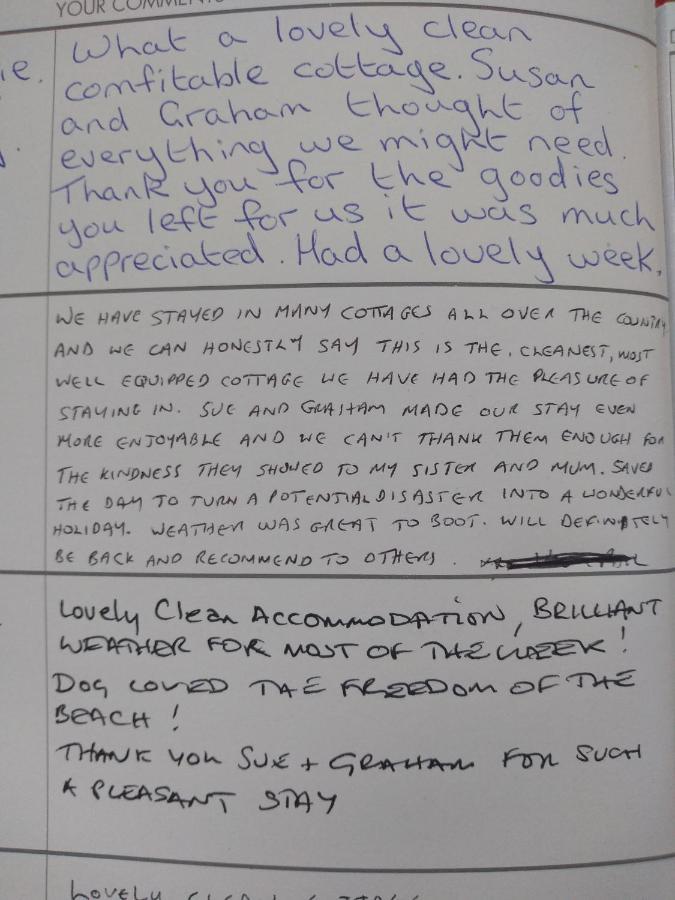 YOUR COMMENTS
ie. What a lovely clean
comfitable cottage. Susan
and Graham thought of
everything we might need.
Thank you for the goodies
you left for us it was much
appreciated. Had a lovely week.
WE HAVE STAYED IN MANY COTTAGES ALL OVER THE COUNTRY
AND WE CAN HONESTLY SAY THIS IS THE, CLEANEST, MOST
WELL EQUIPPED COTTAGE WE HAVE HAD THE PLEASURE OF
STAYING IN. SUE AND GRAHAM MADE OUR STAY EVEN
MORE ENJOYABLE AND WE CAN'T THANK THEM ENOUGH FOR
THE KINDNESS THEY SHOWED TO MY SISTER AND MUM. SAVED
THE DAY TO TURN A POTENTIAL DISASTER INTO A WONDERFUL
HOLIDAY. WEATHER WAS GREAT TO BOOT. WILL DEFINATELY
BE BACK AND RECOMMEND TO OTHERS.
Lovely Clean ACCOMMODATION, BRILLIANT
WEATHER FOR MOST OF THE WEEK!
DOG LOVED THE FREEDOM OF THE
BEACH!
THANK YOU SUE + GRAHAM FOR SUCH
A PLEASANT STAY
LOVELY